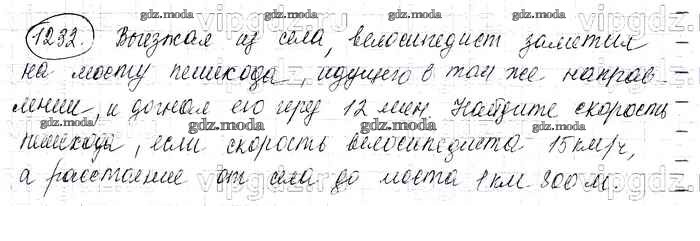 1232. Выезжая из села, велосипедист заметил
на мосту пешехода, идущего в том же направ
лении, и догнал его через 12 мин. Найдите скорость
пешехода, если скорость велосипедиста 15 км/ч,
а расстояние от села до моста 1 км 800 м.
gdz.moda
vipgdz.com